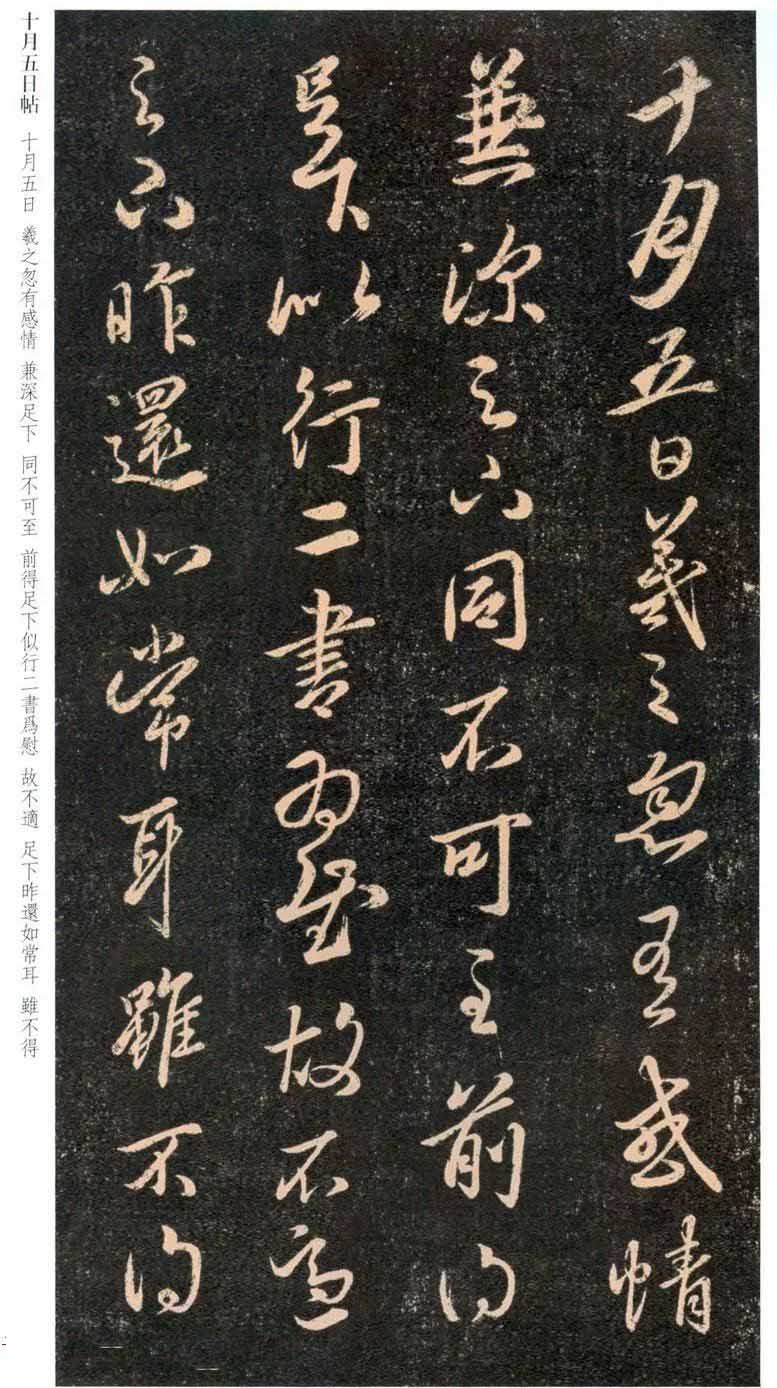 十月五日羲之忽有感情
兼深足下同不可至前得
足下似行二書爲慰故不適
足下昨還如常耳雖不得
十月五日帖 十月五日 羲之忽有感情 兼深足下 同不可至 前得足下似行二書爲慰 故不適 足下昨還如常耳 雖不得